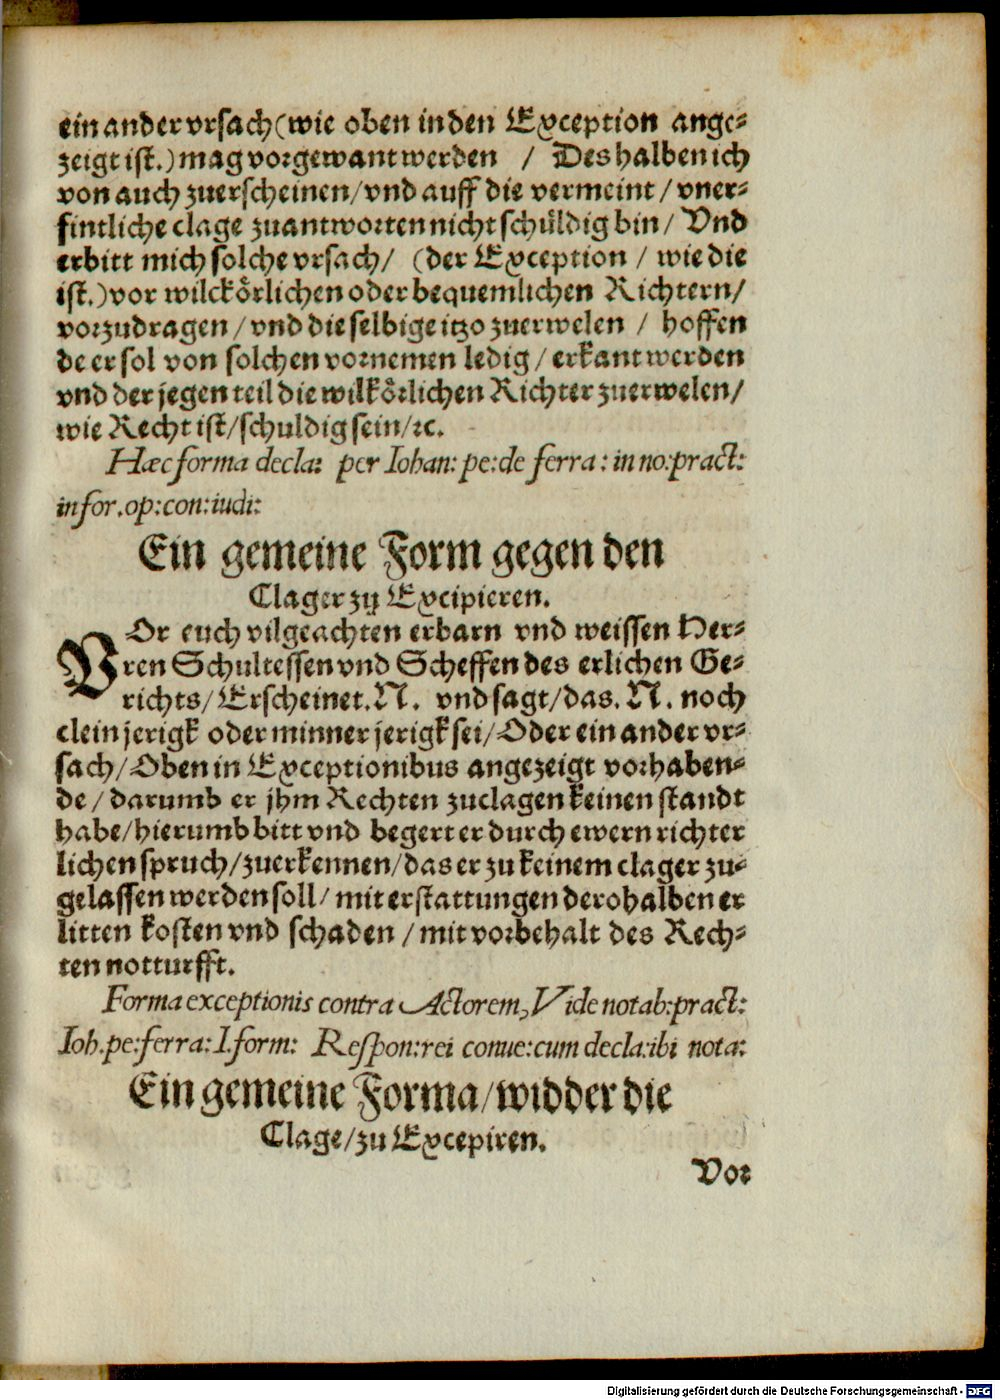 ein ander vrsach (wie oben in den Exception ange-
zeigt ist.) mag vorgewant werden / Deshalben ich
von auch zuerscheinen / vnd auff die vermeint / vner-
fintliche clage zuantworten nicht schüldig bin / Vnd
erbitt mich solche vrsach / (der Exception / wie die
ist.) vor wilckörlichen oder bequemlichen Richtern /
vorzudragen / vnd die selbige itzo zuerwelen / hoffen
de er sol von solchen vornemen ledig / erkant werden
vnd der jegen teil die wilkörlichen Richter zuerwelen /
wie Recht ist / schuldig sein / ꝛc.
Hæc forma decla: per Iohan: pe: de ferra: in no: pract:
in for. op: con: iudi:
Ein gemeine Form gegen den
Clager zu Excipieren.
VOr euch vilgeachten erbarn vnd weissen Her-
ren Schultessen vnd Scheffen des erlichen Ge-
richts / Erscheinet. N. vnd sagt / das. N. noch
clein jerigk oder minner jerigk sei / Oder ein ander vr-
sach / Oben in Exceptionibus angezeigt vorhaben-
de / darumb er jhm Rechten zuclagen keinen standt
habe / hierumb bitt vnd begert er durch ewern richter
lichen spruch / zuerkennen / das er zu keinem clager zu-
gelassen werden soll / mit erstattungen derohalben er
litten kosten vnd schaden / mit vorbehalt des Rech-
ten notturfft.
Forma exceptionis contra Actorem, Vide notab: pract:
Ioh. pe: ferra: I. form: Respon: rei conue: cum decla: ibi nota:
Ein gemeine Forma / widder die
Clage / zu Excepiren.
Vor
Digitalisierung gefördert durch die Deutsche Forschungsgemeinschaft - DFG